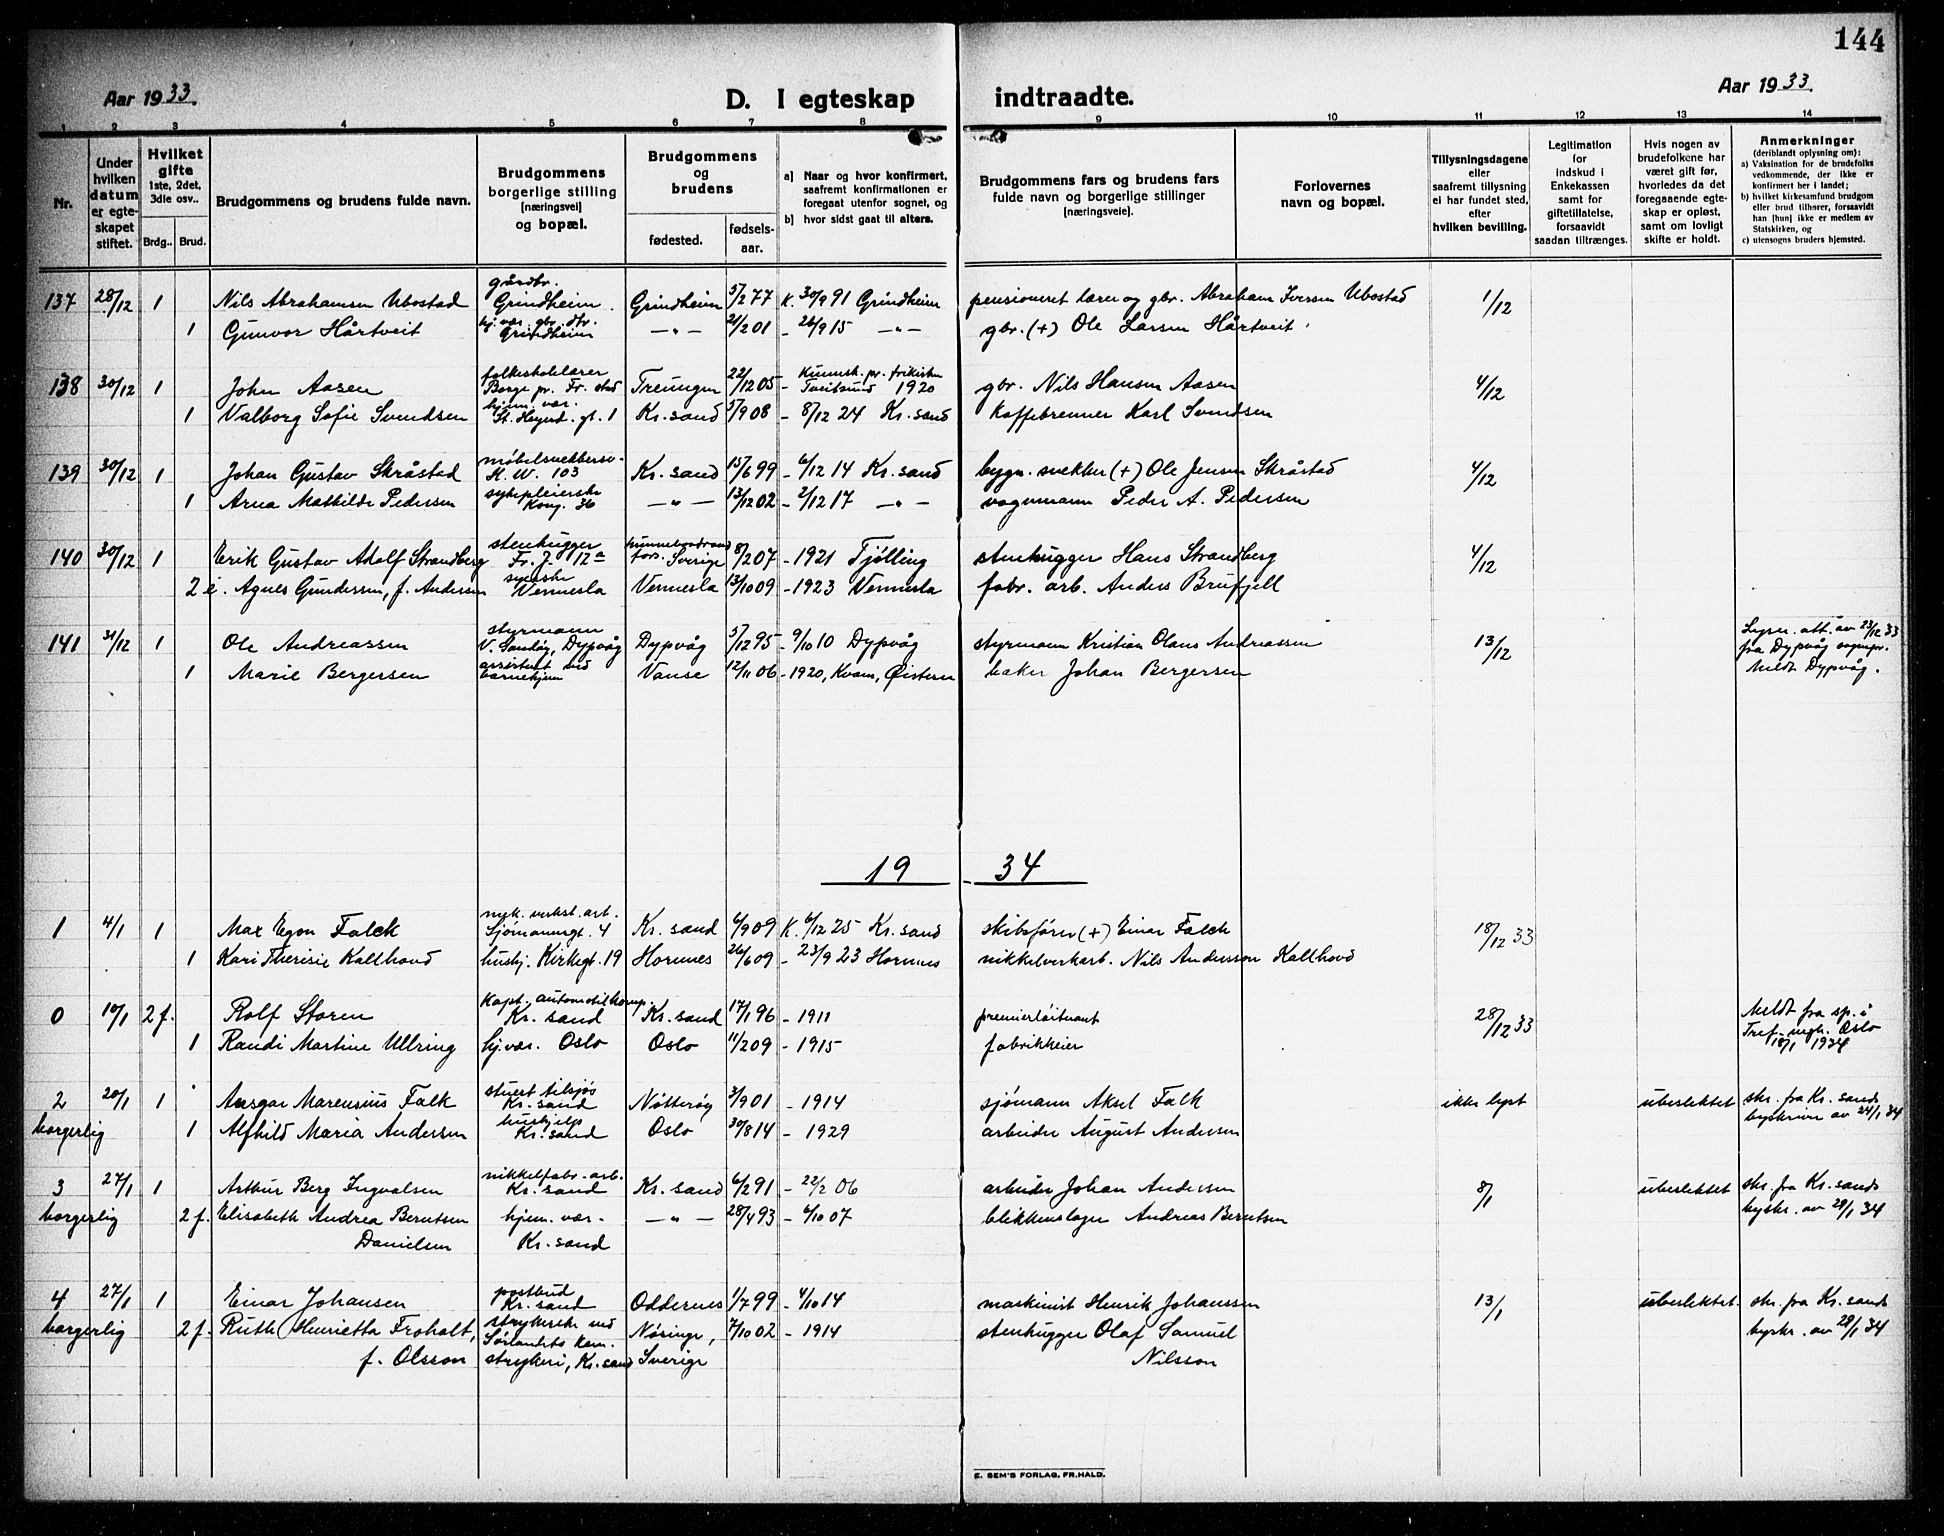 144
Aar 1933.
D. I egteskap indtraadte.
Aar 1933.
1 2 3 4 5 6 7 8 9 10 11 12 13 14
Nr.
Under hvilken datum er egteskapet stiftet.
Hvilket gifte 1ste, 2det, 3die osv..
Brdg.. Brud.
Brudgommens og brudens fulde navn.
Brudgommens borgerlige stilling [næringsvei] og bopæl.
Brudgommens og brudens
fødested. fødselsaar.
a) Naar og hvor konfirmert, saafremt konfirmationen er foregaat utenfor sognet, og
b) hvor sidst gaat til alters.
Brudgommens fars og brudens fars fulde navn og borgerlige stillinger [næringsveie].
Forlovernes navn og bopæl.
Tillysningsdagene eller saafremt tillysning ei har fundet sted, efter hvilken bevilling.
Legitimation for indskud i Enkekassen samt for giftetillatelse, forsaavidt saadan tiltrænges.
Hvis nogen av brudefolkene har været gift før, hvorledes da det foregaaende egteskap er opløst, samt om lovligt skifte er holdt.
Anmerkninger (deriblandt oplysning om):
a) Vaksination for de brudefolks vedkommende, der ikke er konfirmert her i landet;
b) hvilket kirkesamfund brudgom eller brud tilhører, forsaavidt han [hun] ikke er medlem av Statskirken, og
c) utensogns bruders hjemsted.
137 28/12 1 Nils Abrahamsen Ubostad gårdbr. Grindheim Grindheim 5/2 77 K. 30/9 91 Grindheim pensioneret lærer og gbr. Abraham Iversen Ubostad 1/12
1 Gunvor Hårtveit hj. vær. gbr. dtr. Grindheim —"— 21/2 01 - 26/9 15 —"— gbr. (+) Ole Larsen Hårtveit
138 30/12 1 John Aasen folkeskolelærer Borge pr. Fr.stad Treungen 22/12 05 - Tveitsund 1920 gbr. Nils Hansen Aasen 4/12
1 Valborg Sofie Svendsen hjem. vær. Kr.sand 5/9 08 - 8/12 24 Kr.sand Kaffebrenner Karl Svendsen
139 30/12 1 Johan Gustav Skråstad K. W. 103 Kr.sand 15/6 99 - 6/12 14 Kr.sand bygn. snekker (+) Ole Jensen Skråstad 4/12
1 Arna Mathilde Pedersen sykepleierske Kong. 36 —"— 13/12 02 - 2/12 17 —"— vognmann Peder A. Pedersen
140 30/12 1 Erik Gustav Adolf Strandberg stenhugger Fr. J. 12a Sverige 8/2 07 - 1921 Tjølling stenhugger Hans Strandberg 4/12
2 e. Agnes Gundersen, f. Andersen syerske Vennesla Vennesla 13/10 09 - 1923 Vennesla fabr. arb. Anders Brufjell
141 31/12 1 Ole Andreassen styrmann V. Sandøy, Dypvåg Dypvåg 5/12 95 - 9/10 10 Dypvåg styrmann Kristian Olaus Andreassen 13/12 att. av 23/12 33 fra Dypvåg Meldt Dypvåg.
1 Marie Bergersen assistent ved barnehjem Vanse 12/11 06 - 1920, Kvam, Øistern baker Johan Bergersen
1934
1 4/1 1 Max Egon Falck mek. verkst. arb. Sjømannsgt. 4 Kr.sand 6/9 09 K. 6/12 25 Kr.sand skibsfører (+) Einar Falck 18/12 33
1 Kari Theresie Kallhovd hushj. Kirkegt. 19 Hornnes 26/6 09 - 23/9 23 Hornnes nikkelverkarb. Nils Anderson Kallhovd
0 10/1 2 f. Rolf Storen Kapt. automobilkorps. Kr.sand Kr.sand 17/1 96 - 1911 premierløitnant 28/12 33 Meldt fra sp. i Tref. mgh. Oslo 18/1 1934
1 Randi Martine Ullring hj.vær. Oslo Oslo 11/2 09 - 1915 fabrikkeier
2 20/1 1 Ansgar Marensius Falk stuert tilsjøs Kr.sand Nøtterøy 3/9 01 - 1914 sjømann Aksel Falk ikke lyst ubeslektet skr. fra Kr.sands byskriver av 24/1 34
borgerlig 1 Alfhild Maria Andersen hushjelp Kr.sand Oslo 30/8 14 - 1929 arbeider August Andersen
3 27/1 1 Arthur Berg Ingvalsen nikkelfabr. arb. Kr.sand Kr.sand 6/2 91 - 22/2 06 arbeider Johan Andersen 8/1 ubeslektet skr. fra Kr.sands byskr. av 29/1 34
borgerlig 2 f. Elisabeth Andrea Berntsen Danielsen hjem. vær. Kr.sand —"— 28/4 93 - 6/10 07 blikkenslager Andreas Berntsen
4 27/1 1 Einar Johansen postbud Kr.sand Oddernes 1/7 99 - 4/10 14 maskinist Henrik Johanssen 13/1 ubeslektet. skr. fra Kr.sands byskr. av 29/1 34
borgerlig 2 f. Ruth Henrietta Froholt, f. Olsson strykerske ved Sørlandets kem. strykeri, Kr.sand Nøsinge, Sverige 7/10 02 - 1914 stenhugger Olaf Samuel Nilsson
E. SEM'S FORLAG, FR.HALD.